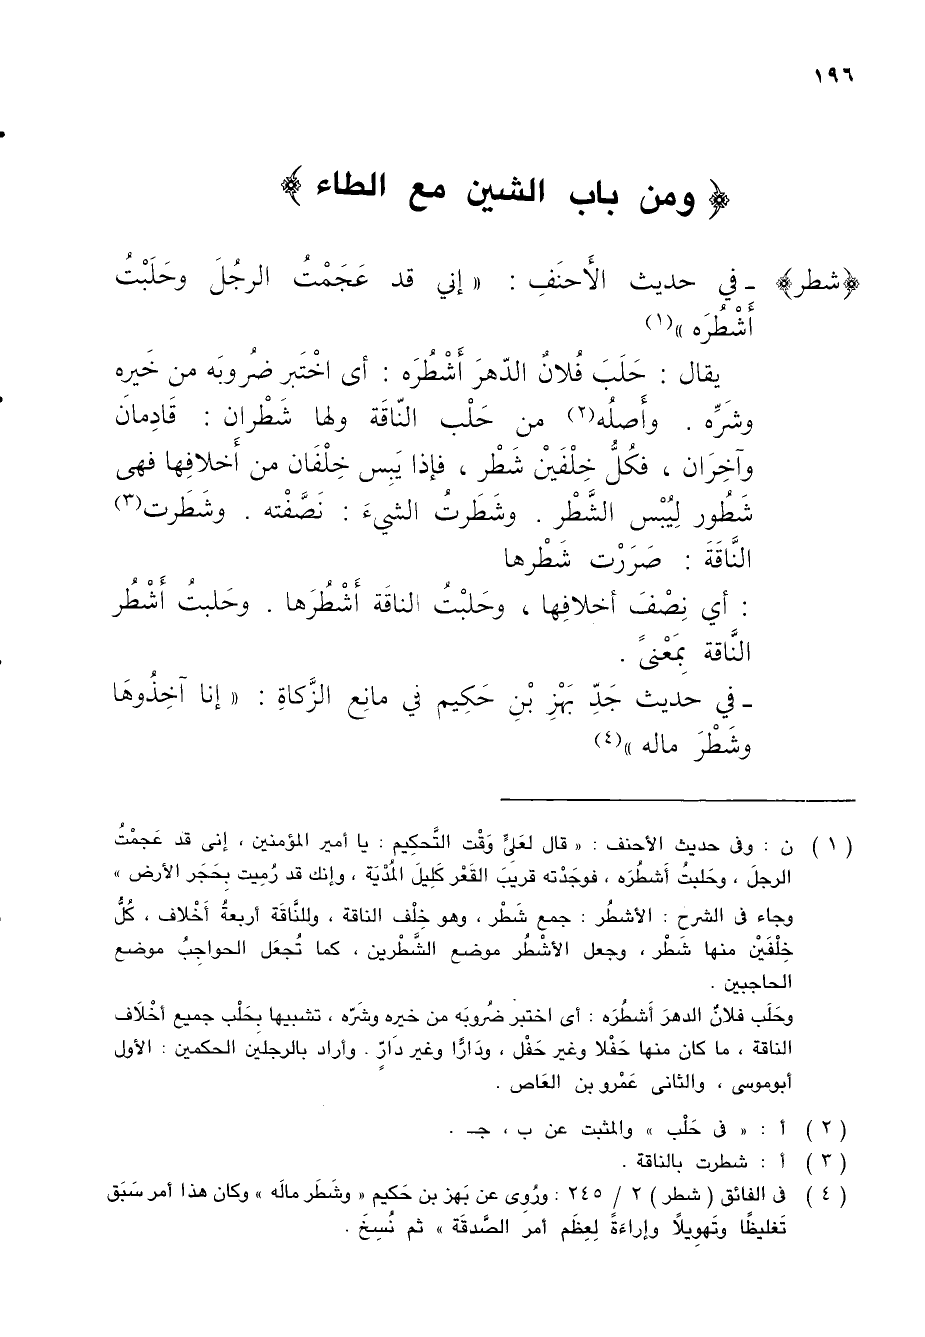 ١٩٦
﴿ ومن باب الشين مع الطاء ﴾
﴿شطر﴾ ـ في حديث الأَحنَفِ : « إني قد عَجَمْتُ الرجُلَ وحَلَبْتُ
أَشْطُرَه »(١)
يقال : حَلَبَ فُلانٌ الدّهرَ أَشْطُرَه : أى اخْتَبر ضُروبَه من خَيره
وشَرِّه . وأَصلُه(٢) من حَلْب النّاقة ولها شَطْران : قَادِمان
وآخِرَان ، فكُلُّ خِلْفَيْن شَطْر ، فإذا يَبِس خِلْفَان من أَخلافِها فهى
شَطُور لِيُبْس الشَّطْر . وشَطَرتُ الشيءَ : نَصَّفْته . وشَطَرت(٣)
النَّاقَةَ : صَرَرْت شَطْرها
: أي نِصْفَ أخلافِها ، وحَلبْتُ الناقة أَشْطُرَها . وحَلبتُ أَشْطُر
النَّاقة بمَعْنىً .
ـ في حديث جَدِّ بَهْزِ بْنِ حَكِيم في مانِع الزَّكاةِ : « إنا آخِذُوهَا
وشَطْرَ ماله »(٤)
( ١ ) ن : وفى حديث الأحنف : « قال لعَليٍّ وَقْت التَّحكِيم : يا أمير المؤمنين ، إنى قد عَجمْتُ
الرجلَ ، وحَلبتُ أشطُرَه ، فوجَدْته قريبَ القَعْر كَلِيلَ المُدْيَة ، وإنك قد رُمِيت بحَجَر الأرض »
وجاء فى الشرح : الأشطُر : جمع شَطْر ، وهو خِلْف الناقة ، وللنَّاقة أربعةُ أَخْلاف ، كُلُّ
خِلْفَيْن منها شَطْر ، وجعل الأشْطُر موضع الشَّطْرين ، كما تُجعَل الحواجِبُ موضع
الحاجبين .
وحَلَب فلانٌ الدهرَ أَشطُرَه : أى اختبر ضُروبَه من خيره وشَرّه ، تشبيها بحَلْب جميع أخْلَاف
الناقة ، ما كان منها حَفْلا وغير حَفْل ، ودَارًّا وغير دَارٍّ . وأراد بالرجلين الحكمين : الأول
أبوموسى ، والثانى عَمْرو بن العَاص .
( ٢ ) أ : « فى حَلْب » والمثبت عن ب ، جـ .
( ٣ ) أ : شطرت بالناقة .
( ٤ ) فى الفائق ( شطر ) ٢ / ٢٤٥ : ورُوى عن بَهز بن حَكيم « وشَطَر مالَه » وكان هذا أمر سَبَق
تَغليظًا وتَهويلاً وإراءَةً لِعِظَم أمر الصَّدقَة » ثم نُسِخَ .